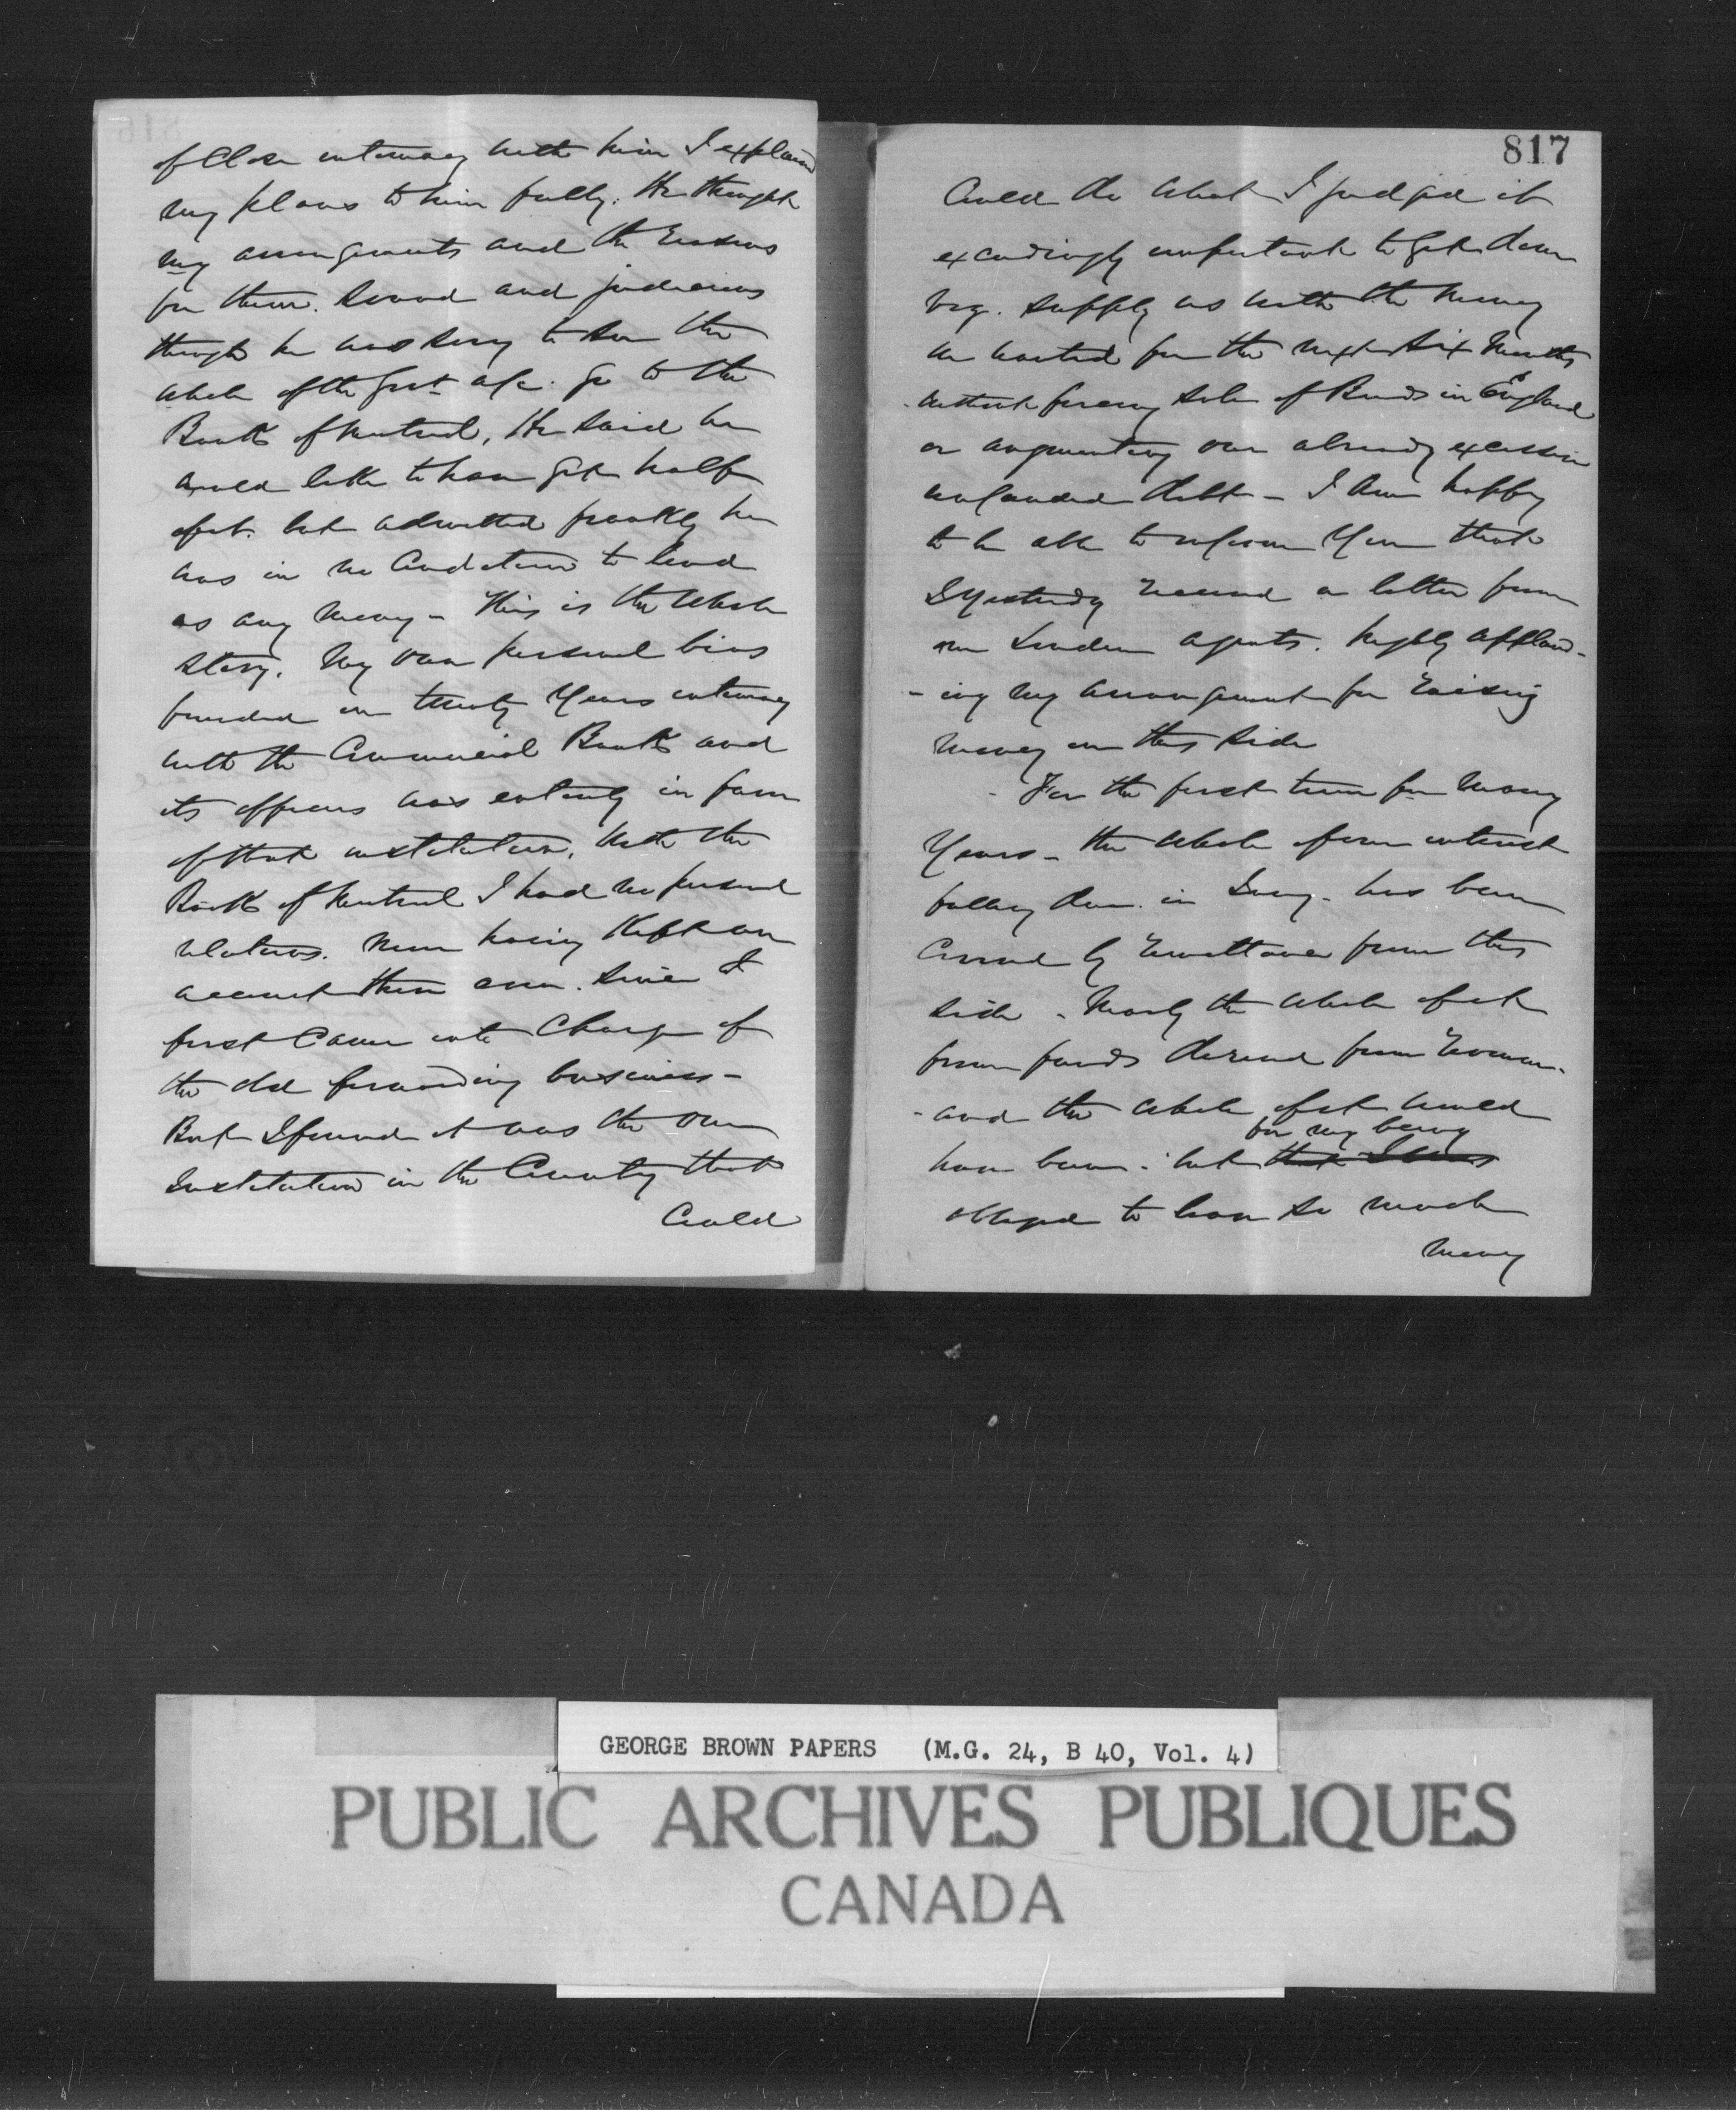 of close intimacy with him I explained
my plans to him fully. He thought
my arrangements and the reasons
for them sound and judicious
though he was sorry to see the
whole of the Govt a/c. go to the
Bank of Montreal, He said he
would like to have got half
of it. but admitted frankly he
was in no condition to lend
us any money - This is the whole
story. My own personal bias
founded on twenty years intimacy
with the Commercial Bank and
its officers was entirely in favor
of that institution. With the
Bank of Montreal I had no personal
relations. never having kept an
account there ever. since I
first came into charge of
the old forwarding business -
But I found it was the one
Institution in the Country that
could
817
could do what I judged it
exceedingly important to get done
viz. supply us with the money
we wanted for the next six months
without forcing sale of Bonds in England
or augmenting our already excessive
unfunded debt - I am happy
to be able to inform you that
I yesterday received a letter from
our London agents. highly applaud-
-ing my arrangement for raising
money on this side
- For the first time for many
years - the whole of our interest
falling due. in Jany. has been
covered by remittance from this
side - Nearly the whole of it
from funds derived from revenue.
- and the whole of it would
for my being
have been. but that I was
obliged to loan so much
money
GEORGE BROWN PAPERS (M.G. 24, B 40, Vol. 4)
PUBLIC ARCHIVES PUBLIQUES
CANADA